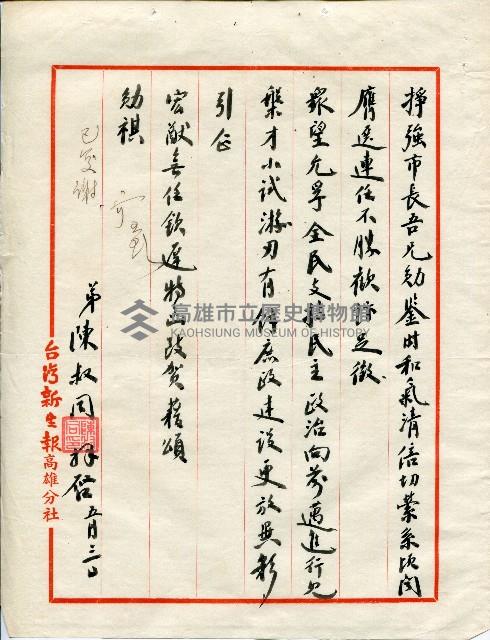 掙強市長吾兄勛鑒时和氣清倍切縈系頃閱
膺選連任不勝歡忭足徵
眾望允孚全民支持民主政治向前邁進行見
槃才小試游刃有餘庶政建設更放異彩
引企
宏猷無任欽遲特此致賀藉頌
勛祺
弟陳叔同拜啓五月三日
已發謝
台灣新生報高雄分社
高雄市立歷史博物館
KAOHSIUNG MUSEUM OF HISTORY